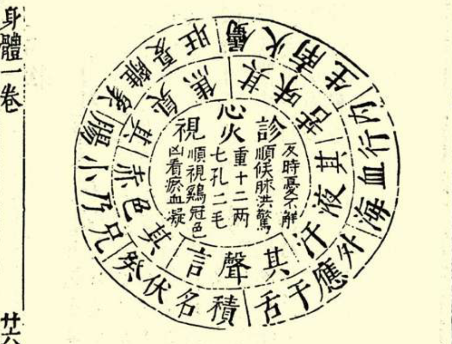 身體一卷
廿六
心火
重十二兩
七孔二毛
診
反時憂不解
順候脉洪驚
視
順視鷄冠色
凶看瘀血凝
其味苦
其液汗
其聲言
其色赤
其臭焦
屬火南生
內行血海
外應于舌
積名伏梁
兄乃小腸
象離夏旺